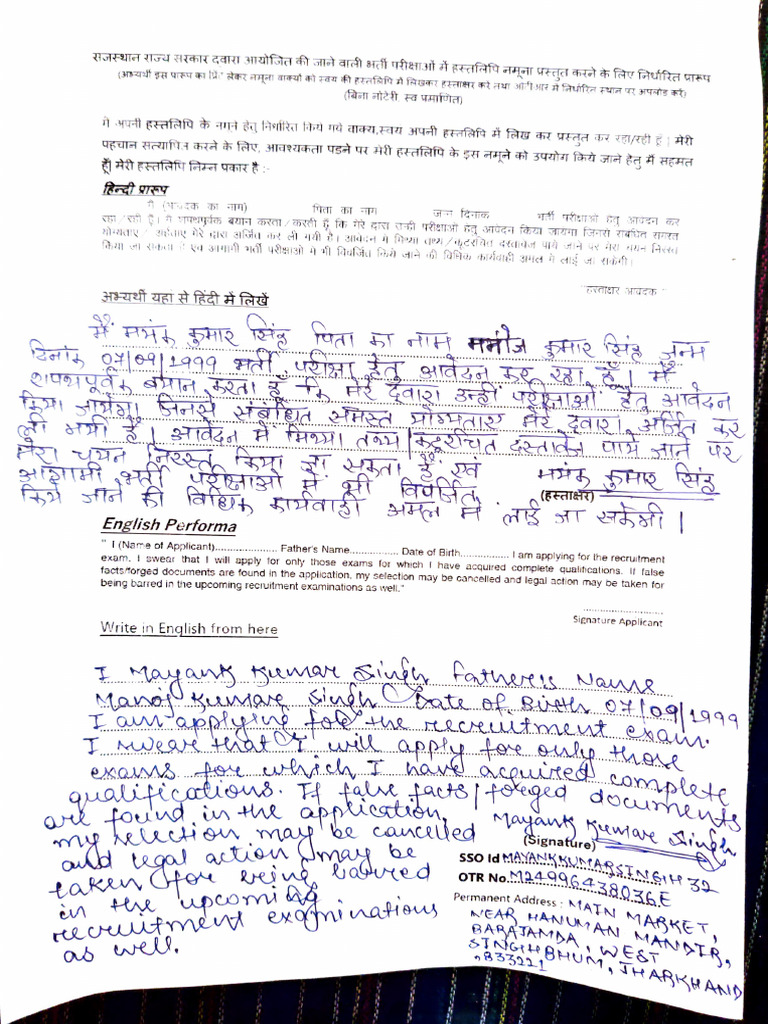 राजस्थान राज्य सरकार दवारा आयोजित की जाने वाली भर्ती परीक्षाओं में हस्तलिपि नमूना प्रस्तुत करने के लिए निर्धारित प्रारूप
(अभ्यर्थी इस प्रारूप का प्रिंट लेकर नमूना वाक्यों को स्वयं की हस्तलिपि में लिखकर हस्ताक्षर करें तथा ओटीआर में निर्धारित स्थान पर अपलोड करें)
(बिना नोटेरी, स्व प्रमाणित)
मैं अपनी हस्तलिपि के नमूने हेतु निर्धारित किये गये वाक्य,स्वयं अपनी हस्तलिपि में लिख कर प्रस्तुत कर रहा/रही हूँ | मेरी
पहचान सत्यापित करने के लिए, आवश्यकता पड़ने पर मेरी हस्तलिपि के इस नमूने को उपयोग किये जाने हेतु मैं सहमत
हूँ| मेरी हस्तलिपि निम्न प्रकार है :-
हिन्दी प्रारूप
मैं (आवेदक का नाम) पिता का नाम जन्म दिनांक भर्ती परीक्षाओं हेतु आवेदन कर
रहा /रही हूँ। मैं शपथपूर्वक बयान करता/करती हूँ कि मेरे द्वारा उन्हीं परीक्षाओं हेतु आवेदन किया जायेगा जिनसे संबंधित समस्त
योग्यताएं / अर्हताएं मेरे द्वारा अर्जित कर ली गयी है। आवेदन में मिथ्या तथ्य/कूटरचित दस्तावेज पाये जाने पर मेरा चयन निरस्त
किया जा सकता है एवं आगामी भर्ती परीक्षाओं में भी विवर्जित किये जाने की विधिक कार्यवाही अमल में लाई जा सकेगी।
"हस्ताक्षर आवेदक "
अभ्यर्थी यहां से हिंदी में लिखें
मैं मयंक कुमार सिंह पिता का नाम मनोज कुमार सिंह जन्म
दिनांक 07/09/1999 भर्ती परीक्षा हेतु आवेदन कर रहा हूँ। मैं
शपथपूर्वक बयान करता हूँ कि मेरे द्वारा उन्हीं परीक्षाओं हेतु आवेदन
किया जायेगा जिनसे संबंधित समस्त योग्यताएं मेरे द्वारा अर्जित कर
ली गयी है। आवेदन में मिथ्या तथ्य/कूटरचित दस्तावेज पाये जाने पर
मेरा चयन निरस्त किया जा सकता है एवं
मयंक कुमार सिंह
(हस्ताक्षर)
आगामी भर्ती परीक्षाओं में भी विवर्जित
किये जाने की विधिक कार्यवाही अमल में लाई जा सकेगी।
English Performa
" I (Name of Applicant)..................... Father's Name................. Date of Birth............... I am applying for the recruitment
exam. I swear that I will apply for only those exams for which I have acquired complete qualifications. If false
facts/forged documents are found in the application, my selection may be cancelled and legal action may be taken for
being barred in the upcoming recruitment examinations as well."
Signature Applicant
Write in English from here
I Mayank Kumar Singh Father's Name
Manoj Kumar Singh Date of Birth 07/09/1999
I am applying for the recruitment exam.
I swear that I will apply for only those
exams for which I have acquired complete
qualifications. If false facts/forged documents
are found in the application,
my selection may be cancelled
and legal action may be
taken for being barred
in the upcoming
recruitment examinations
as well.
Mayank Kumar Singh
(Signature)
SSO Id MAYANKKUMARSINGH32
OTR No. M249964380 36E
Permanent Address : MAIN MARKET,
NEAR HANUMAN MANDIR,
BARAJAMDA, WEST
SINGHBHUM, JHARKHAND
833221